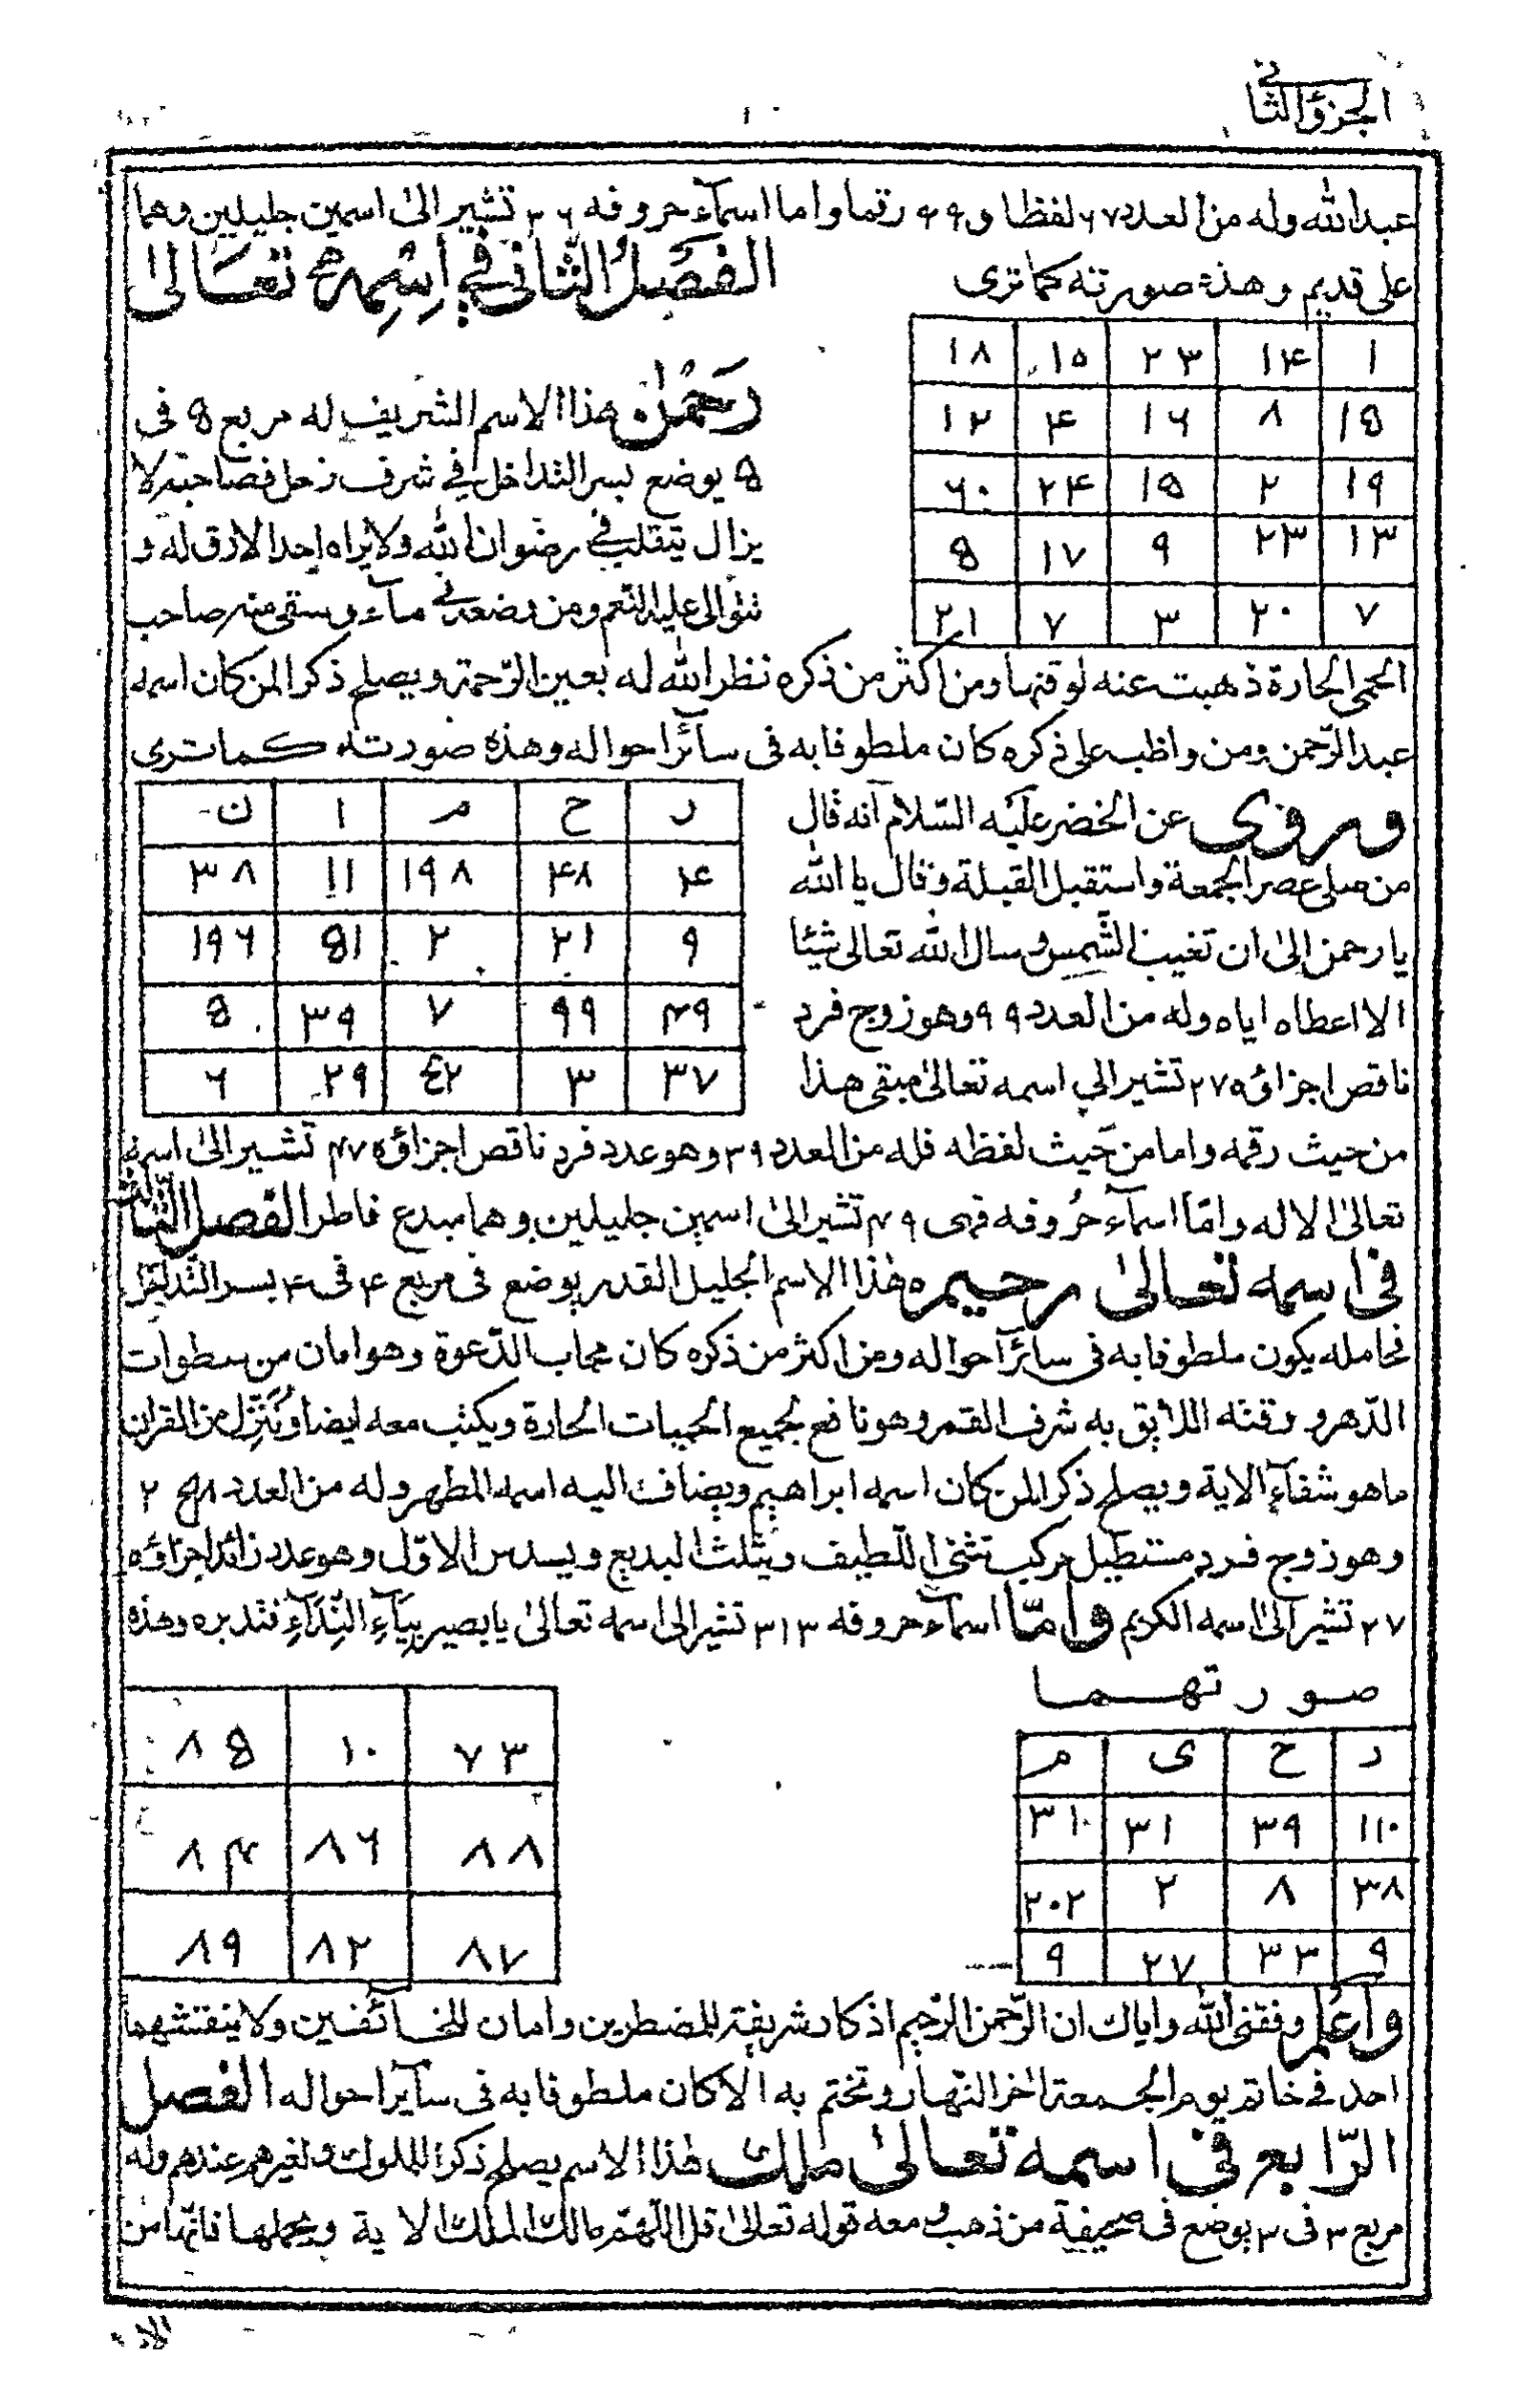 الجزؤ الثانى
عبدالله وله من العدد ٦٧ لفظا و ٩٩ رقما واما اسمآء حروفه ٣٦ تشير الىٰ اسمين جليلين وهما
على قديم وهذه صورته كما ترى
الفصل الثانى فى اسمه تعالىٰ
١ ١۴ ٢٣ ١٥ ١٨
١٥ ٨ ١٦ ۴ ١٢
١٩ ٢ ١٥ ٢۴ ٦٠
١٣ ٢٣ ٩ ١٧ ٥
٧ ٢٠ ٣ ٧ ٢١
رحمٰن هذا الاسم الشريف له مربع ٥ فى
٥ يوضع بسر التداخل فى شرف زحل فصاحبه لا
يزال يتقلب فى رضوان الله ولا يراه احد الارق له و
تتوالى عليه النعم ومن وضعه فى مآء ويسقى منه صاحب
الحمى الحارة ذهبت عنه لوقتها ومن اكثر من ذكره نظر الله له بعين الرّحمة ويصلح ذكرا لمن كان اسمه
عبد الرّحمن ومن واظب على ذكره كان ملطوفا به فى سآئر احواله وهذه صورته كما ترى
ر ح م ا ن
۴ ۴٨ ١٩٨ ١١ ٣٨
٩ ٢١ ٢ ٥١ ١٩٦
۴٩ ٩٩ ٧ ٣٩ ٥
٣٧ ٣ ٢٩ ٦
وروى عن الخضر عليه السّلام انه قال
من صلى عصر الجمعة واستقبل القبلة وقال يا الله
يا رحمن الىٰ ان تغيب الشّمس وسال الله تعالى شيئا
الا اعطاه اياه وله من العدد ٩٩ وهو زوج فرد
ناقص اجزاؤه ٢٧ تشير الى اسمه تعالىٰ مبقى هذا
من حيث رقمه واما من حيث لفظه فله من العدد ٣٩ وهو عدد فرد ناقص اجزاؤه ۴٧ تشير الىٰ اسمه
تعالىٰ الا له وامّا اسمآء حروفه فهى ۴٩ تشير الىٰ اسمين جليلين وهما مبدع فاطر الفصل الثالث
فى اسمه تعالىٰ رحيم هٰذا الاسم الجليل القدر يوضع فى مربع ۴ فى ۴ بسر التداخل
فحامله يكون ملطوفا به فى سائر احواله ومن اكثر من ذكره كان مجاب الدّعوة وهو امان من سطوات
الدّهر و وقته اللايق به شرف القمر وهو نافع لجميع الحميات الحارة ويكتب معه ايضا وَنُنَزِّل من القران
ما هو شفآء الاية ويصلح ذكرا لمن كان اسمه ابراهيم ويضاف اليه اسمه المطهر وله من العدد
وهو زوج فرد مستطيل مركب تثنى اللّطيف ويثلث البديع ويسدس الاوّل وهو عدد زائد اجزاؤه
٢٧ تشير الىٰ اسمه الكريم وامّا اسمآء حروفه ٣١٣ تشير الى اسمه تعالىٰ يا بصير بيآءِ النِّدَآءِ فتدبره وهذه
صورتهما
ر ح ى م
١١٠ ٣٩ ٣١ ٣١٠
٣٨ ٨ ٢ ٢٠٢
٩ ٣٣ ٢٧ ٩
٧٣ ١٠ ٨٥
٨٨ ٨٦ ٨۴
٨٧ ٨٢ ٨٩
واعلم وفقنى الله واياك ان الرّحمن الرّحيم اذكار شريفة للمضطرين وامان للخآئفين ولا ينقشهما
احد فى خاتم يوم الجمعة اخر النّهار وتختم به الا كان ملطوفا به فى سآير احواله الفصل
الرّابع فى اسمه تعالىٰ ملك هٰذا الاسم يصلح ذكرا للملوك ولغيرهم عندهم وله
مربع ٣ فى ٣ يوضع فى صحيفة من ذهب و معه قوله تعالىٰ قل اللّهمّ مالك الملك الاية ويحملها فانّها من